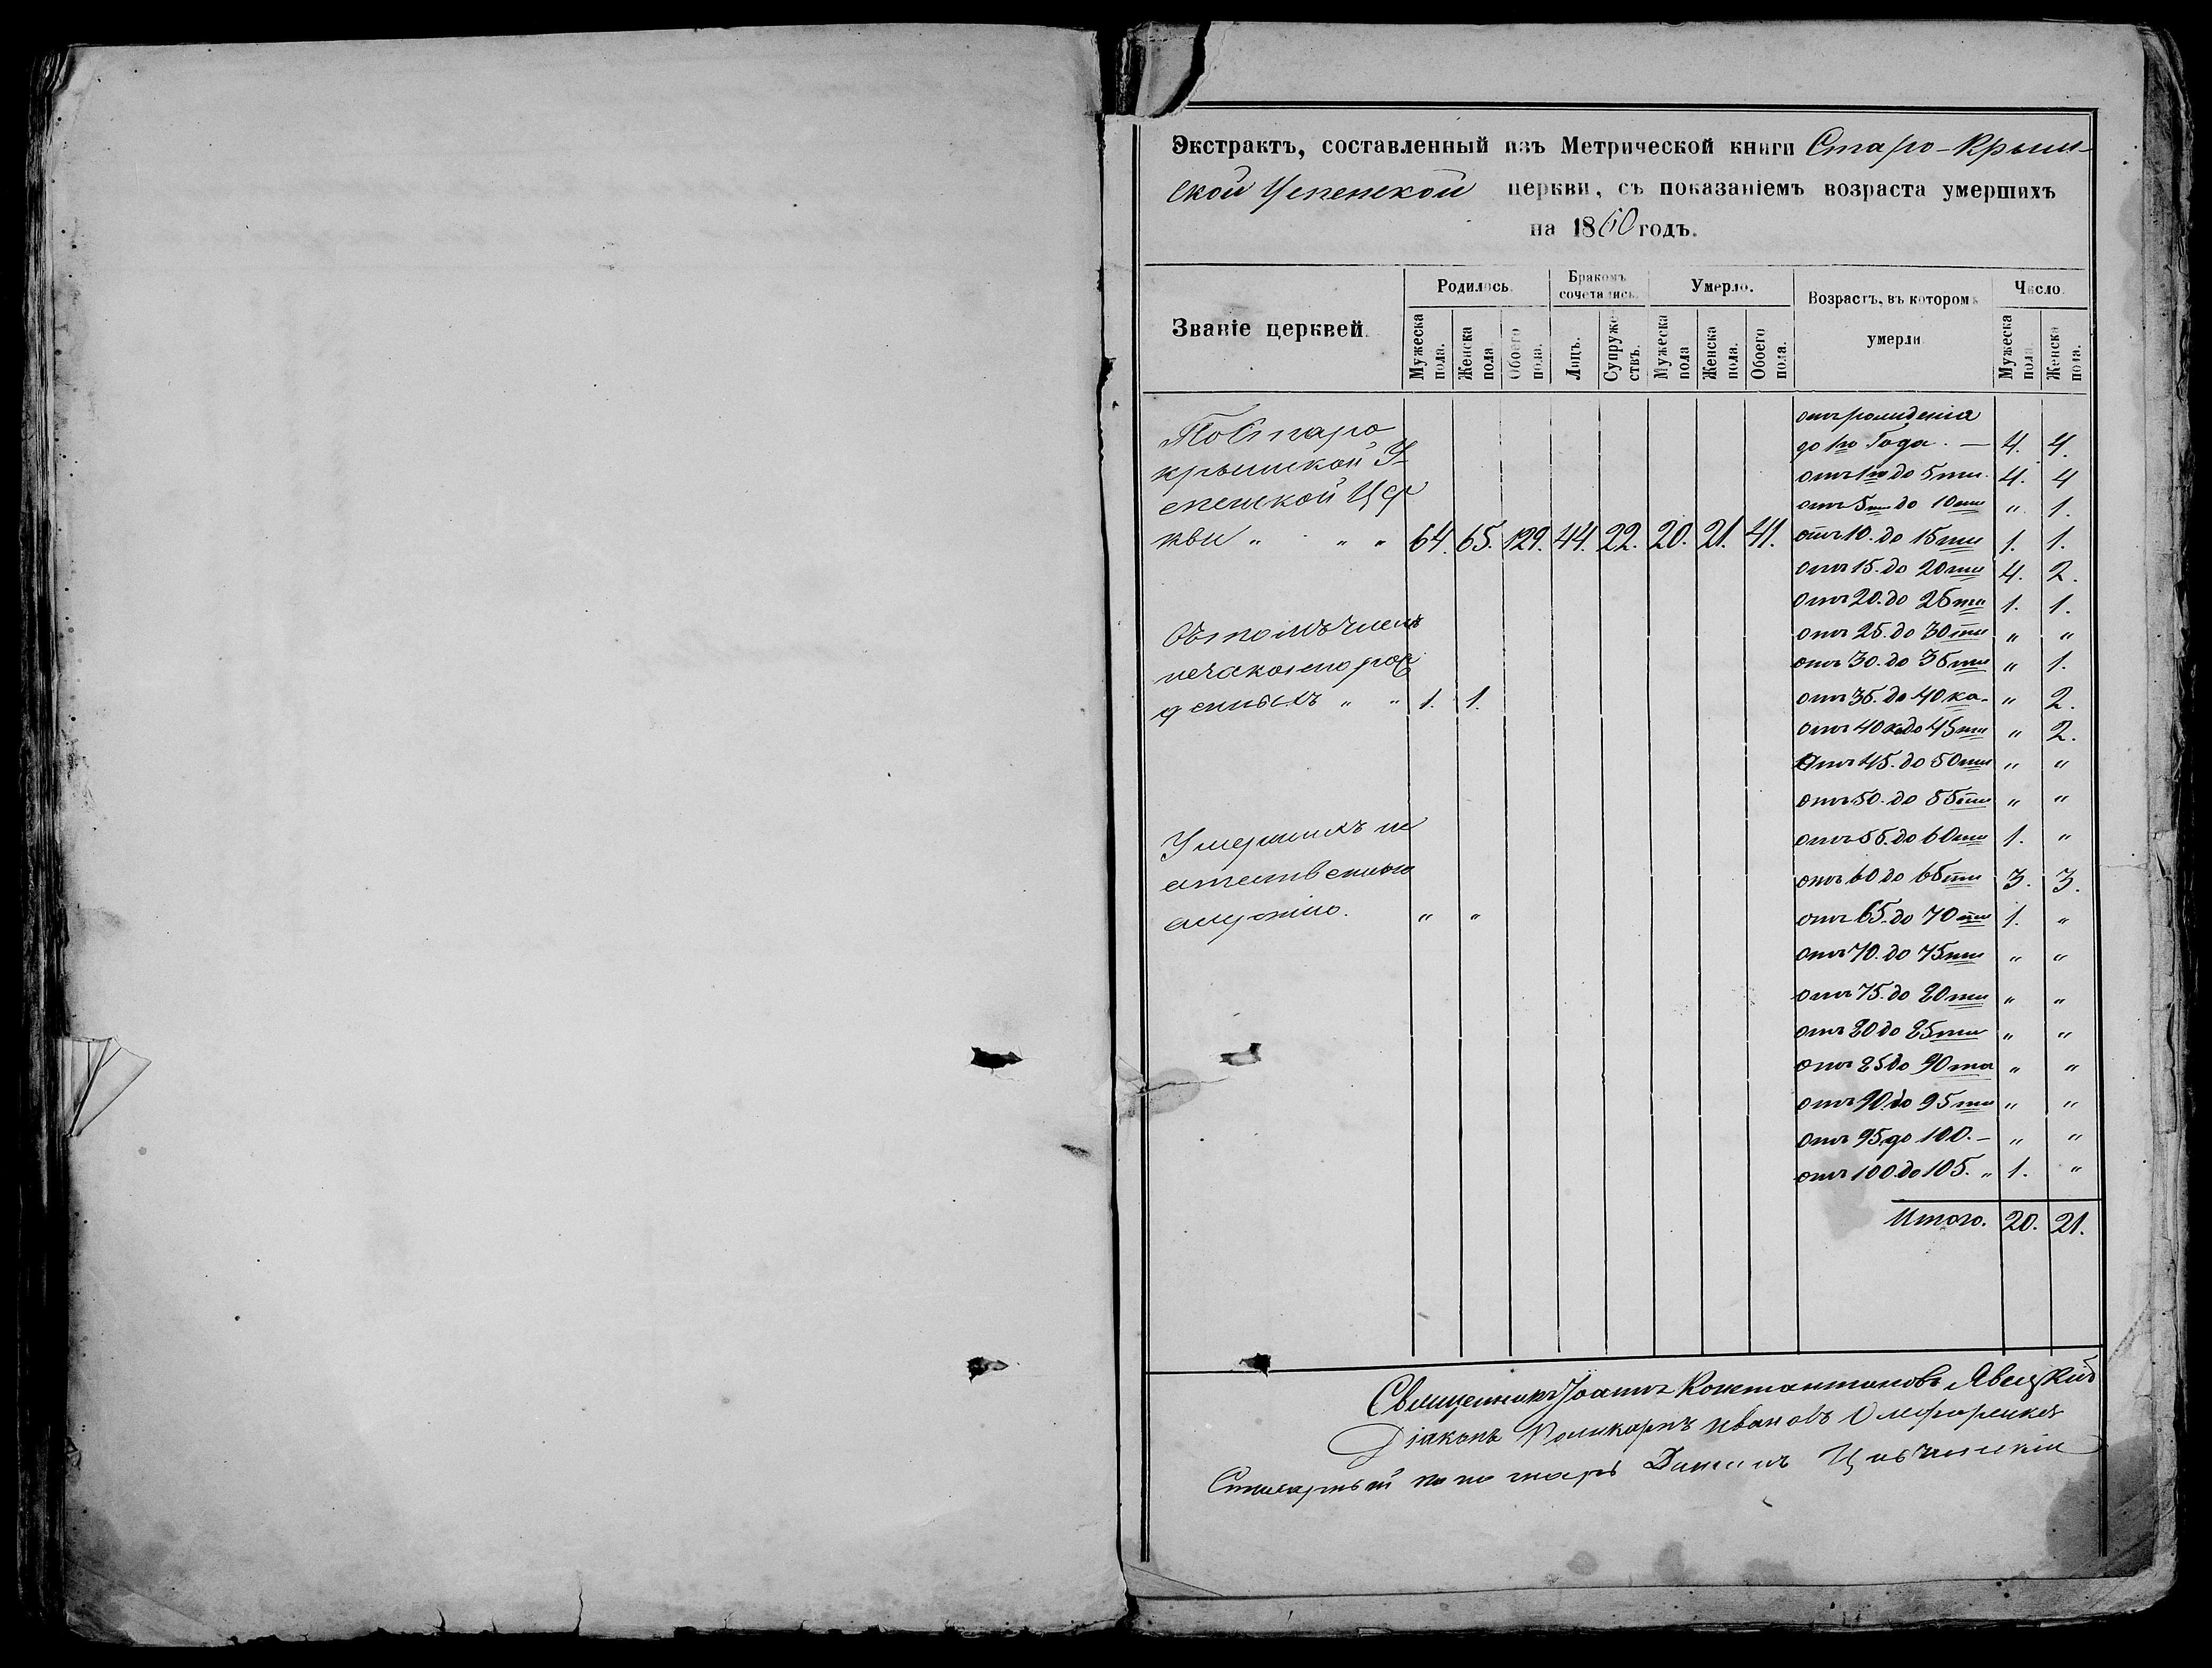 Экстрактъ, составленный изъ Метрической книги Старо-Крым-
ской Успенской церкви, съ показаніемъ возраста умершихъ
на 1860 годъ.
Званіе церквей. Родилось. Бракомъ сочетались. Умерло. Возрастъ, въ которомъ умерли Число.
Мужеска пола. Женска пола Обоего пола. Лицъ. Супружествъ. Мужеска пола Женска пола. Обоего пола. Мужеска пола. Женска пола.
По Старо
крымской У-
спенской Цер
кви „ „ „ 64. 65. 129. 44. 22. 20. 21. 41.
Въ томъ числѣ
незаконорож
денныхъ „ „ 1. 1.
Умершихъ не
естественною
смертію. „ „
отъ рожденія
до 1го Года. — 4. 4.
отъ 1го до 5ти. 4. 4
отъ 5ти до 10ти „ 1.
отъ 10. до 15ти 1. 1.
отъ 15. до 20ти 4. 2.
отъ 20. до 25ти 1. 1.
отъ 25. до 30ти „ „
отъ 30. до 35ти „ 1.
отъ 35. до 40ка. „ 2.
отъ 40ка до 45ти „ 2.
отъ 45. до 50ти „ „
отъ 50. до 55ти „ „
отъ 55. до 60ти 1. „
отъ 60 до 65ти 3. 3.
отъ 65. до 70ти 1. „
отъ 70. до 75ти „ „
отъ 75. до 80ти „ „
отъ 80 до 85ти „ „
отъ 85 до 90та „ „
отъ 90 до 95ти „ „
отъ 95 до 100. — „ „
отъ 100 до 105. „ 1. „
Итого. 20. 21.
Священникъ Іоаннъ Константиновъ Явецкій
Діаконъ Поликарпъ Ивановъ
Стихарный понамарь